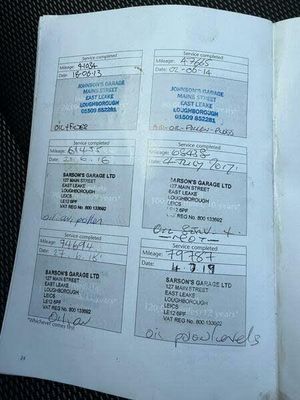 Service completed
Mileage: 41034
Date: 13-06-13
JOHNSON'S GARAGE
MAIN STREET
EAST LEAKE
LOUGHBOROUGH
01509 852281
OIL+FILTER
Service completed
Mileage: 47665
Date: 02-06-14
JOHNSON'S GARAGE
MAIN STREET
EAST LEAKE
LOUGHBOROUGH
01509 852281
OIL-POLLEN-PLUGS
Service completed
Mileage: 61435
Date: 6.16
SARSON'S GARAGE LTD
127 MAIN STREET
EAST LEAKE
LOUGHBOROUGH
LEICS
LE12 6PF
VAT REG No. 800 133692
oil air pollen
Service completed
Mileage: 68438
Date: 4 July 2017
SARSON'S GARAGE LTD
127 MAIN STREET
EAST LEAKE
LOUGHBOROUGH
LEICS
LE12 6PF
VAT REG No. 800 133692
OIL
Service completed
Mileage: 74694
SARSON'S GARAGE LTD
127 MAIN STREET
EAST LEAKE
LOUGHBOROUGH
LEICS
LE12 6PF
VAT REG No. 800 133692
Oil air
Service completed
Mileage: 79787
Date: 4.7.19
SARSON'S GARAGE LTD
127 MAIN STREET
EAST LEAKE
LOUGHBOROUGH
LEICS
LE12 6PF
VAT REG No. 800 133692
oil pollen levels
*Whichever comes first
24